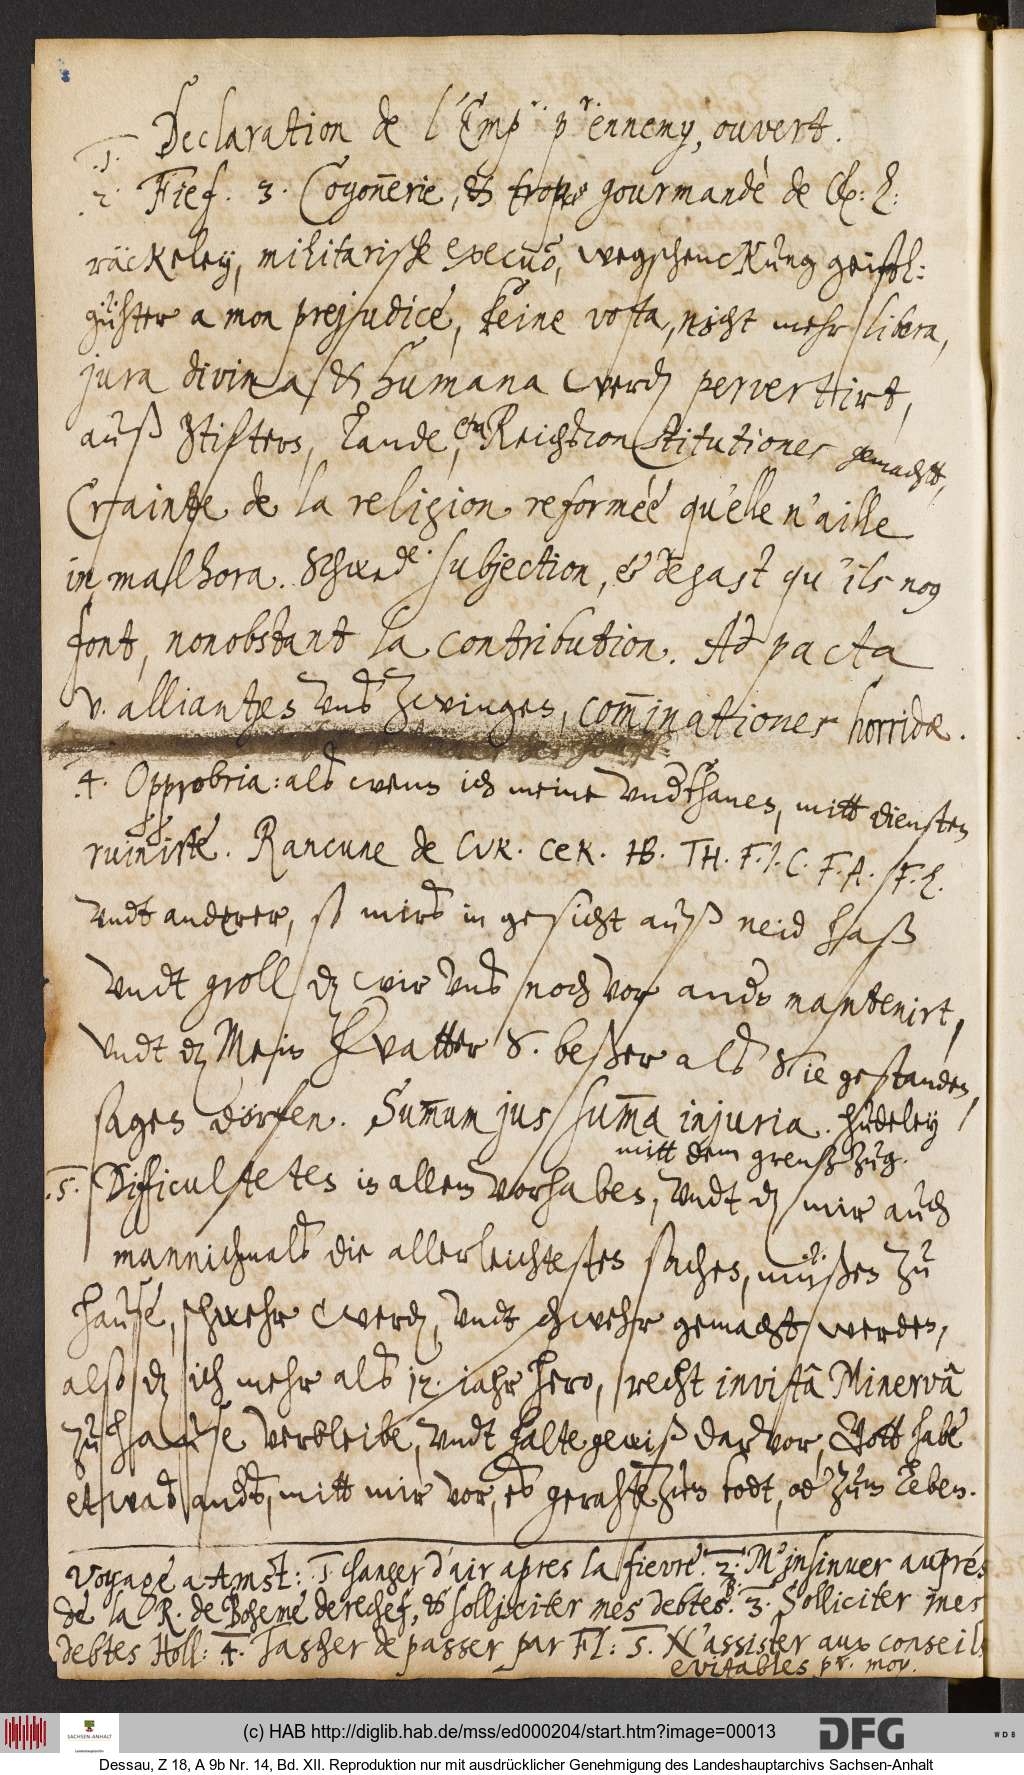 .1. Declaration de l'Emp.r p.r ennemy, ouvert.
.2. Fief. 3. Coyonnerie, & trop gourmandè de
räckeley, militarische execũõ, wegschenckung geistl:
gühter a mon prejudice, keine vota, nicht mehr libera,
jura divina & humana werdẽ pervertirt,
auß Stiftern, Lande, Reichsconstitutiones gemacht,
Crainte de la religion reformèè qu'elle n'aille
in malhora. Schwed: subjection, & degast qu'ils nos
font, nonobstant la contribution. Ad pacta
v. alliantzen unß zwingen, com̃inationes horridæ.
.4. Opprobria: alß wenn ich meine Undthanen, mitt diensten
ruinirte. Rancune de CVK. CEK. HB. TH. F. I. C. F. A. F. L.
undt anderer, so mirs in gesicht auß neid haß
undt groll dz wir unß noch vor anders mantenirt,
undt dz Mein Hvatter S. beßer alß Sie gestanden,
sagen dörfen. Sum̃um jus sum̃a injuria. Hudeley
mitt dem grentzzug.
.5. Difficultetes in allem vorhaben, undt dz mir auch
mannichmalß die allerleichtesten sachen, müßen zu
hause, schwehr werdẽ, undt schwehr gemacht werden,
also dz ich mehr alß 12. jahr hero, recht invitâ Minervâ
zu hause verbleibe, undt halte gewiß darvor, Gott habe
etwaß anders, mitt mir vor, es gerahte zum todt, oder zum Leben.
Voyage a Amst: 1. Changer d'air apres la fievre. 2. M'insinuer auprés
de la R. de Boheme derechef, & solliciter mes debtes B. 3. Solliciter mes
debtes Holl: 4. Tascher de passer par Fl: 5. N'assister aux conseils
evitables pr. moy.
(c) HAB http://diglib.hab.de/mss/ed000204/start.htm?image=00013
SACHSEN-ANHALT
DFG
WDB
Dessau, Z 18, A 9b Nr. 14, Bd. XII. Reproduktion nur mit ausdrücklicher Genehmigung des Landeshauptarchivs Sachsen-Anhalt